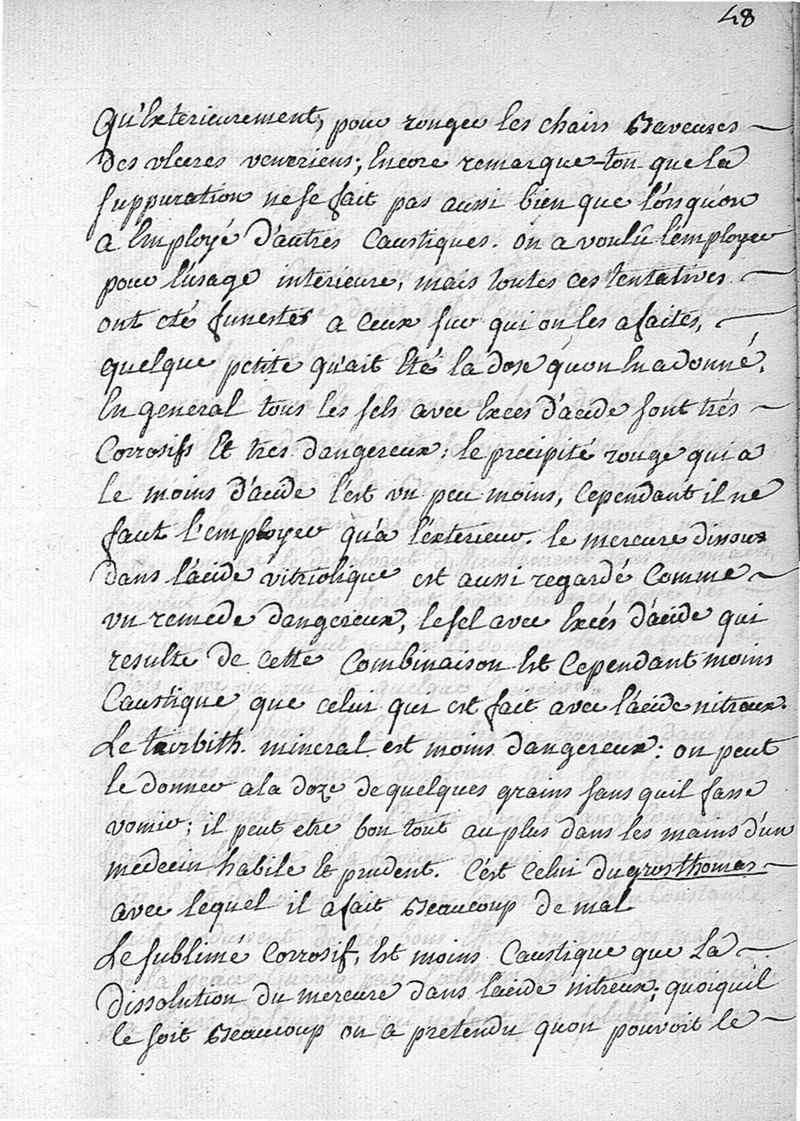 48
Qu'Exterieurement, pour ronger les chairs Baveuses
des vlceres veneriens; Encore remarque-ton que la
suppuration ne se fait pas aussi bien que lorsqu'on
a Employé d'autres Caustiques. on a voulû l'employer
pour l'usage interieure, mais toutes ces tentatives
ont eté funestes a Ceux sur qui on les a faites,
quelque petite qu'ait Eté la dose qu'on En a donné.
En general tous les sels avec Exces d'acide sont trés
Corrosifs Et tres dangereux; le precipité rouge qui a
le moins d'acide l'est vn peu moins, Cependant il ne
faut l'employer qu'a l'exterieur. le mercure dissous
dans l'acide vitriolique est aussi regardé Comme
vn remede dangereux, le sel avec Excés d'acide qui
resulte de Cette Combinaison Est Cependant moins
Caustique que Celui qui est fait avec l'acide nitreux.
Le turbith mineral est moins dangereux: on peut
le donner a la doze de quelques grains sans quil fasse
vomir; il peut etre bon tout au plus dans les mains d'un
medecin habile Et prudent. C'est Celui du gros thomas
avec lequel il a fait Beaucoup de mal
Le sublimé Corrosif, Est moins Caustique que La
dissolution du mercure dans lacide nitreux, quoiquil
le soit Beaucoup on a pretendu quon pouvoit le